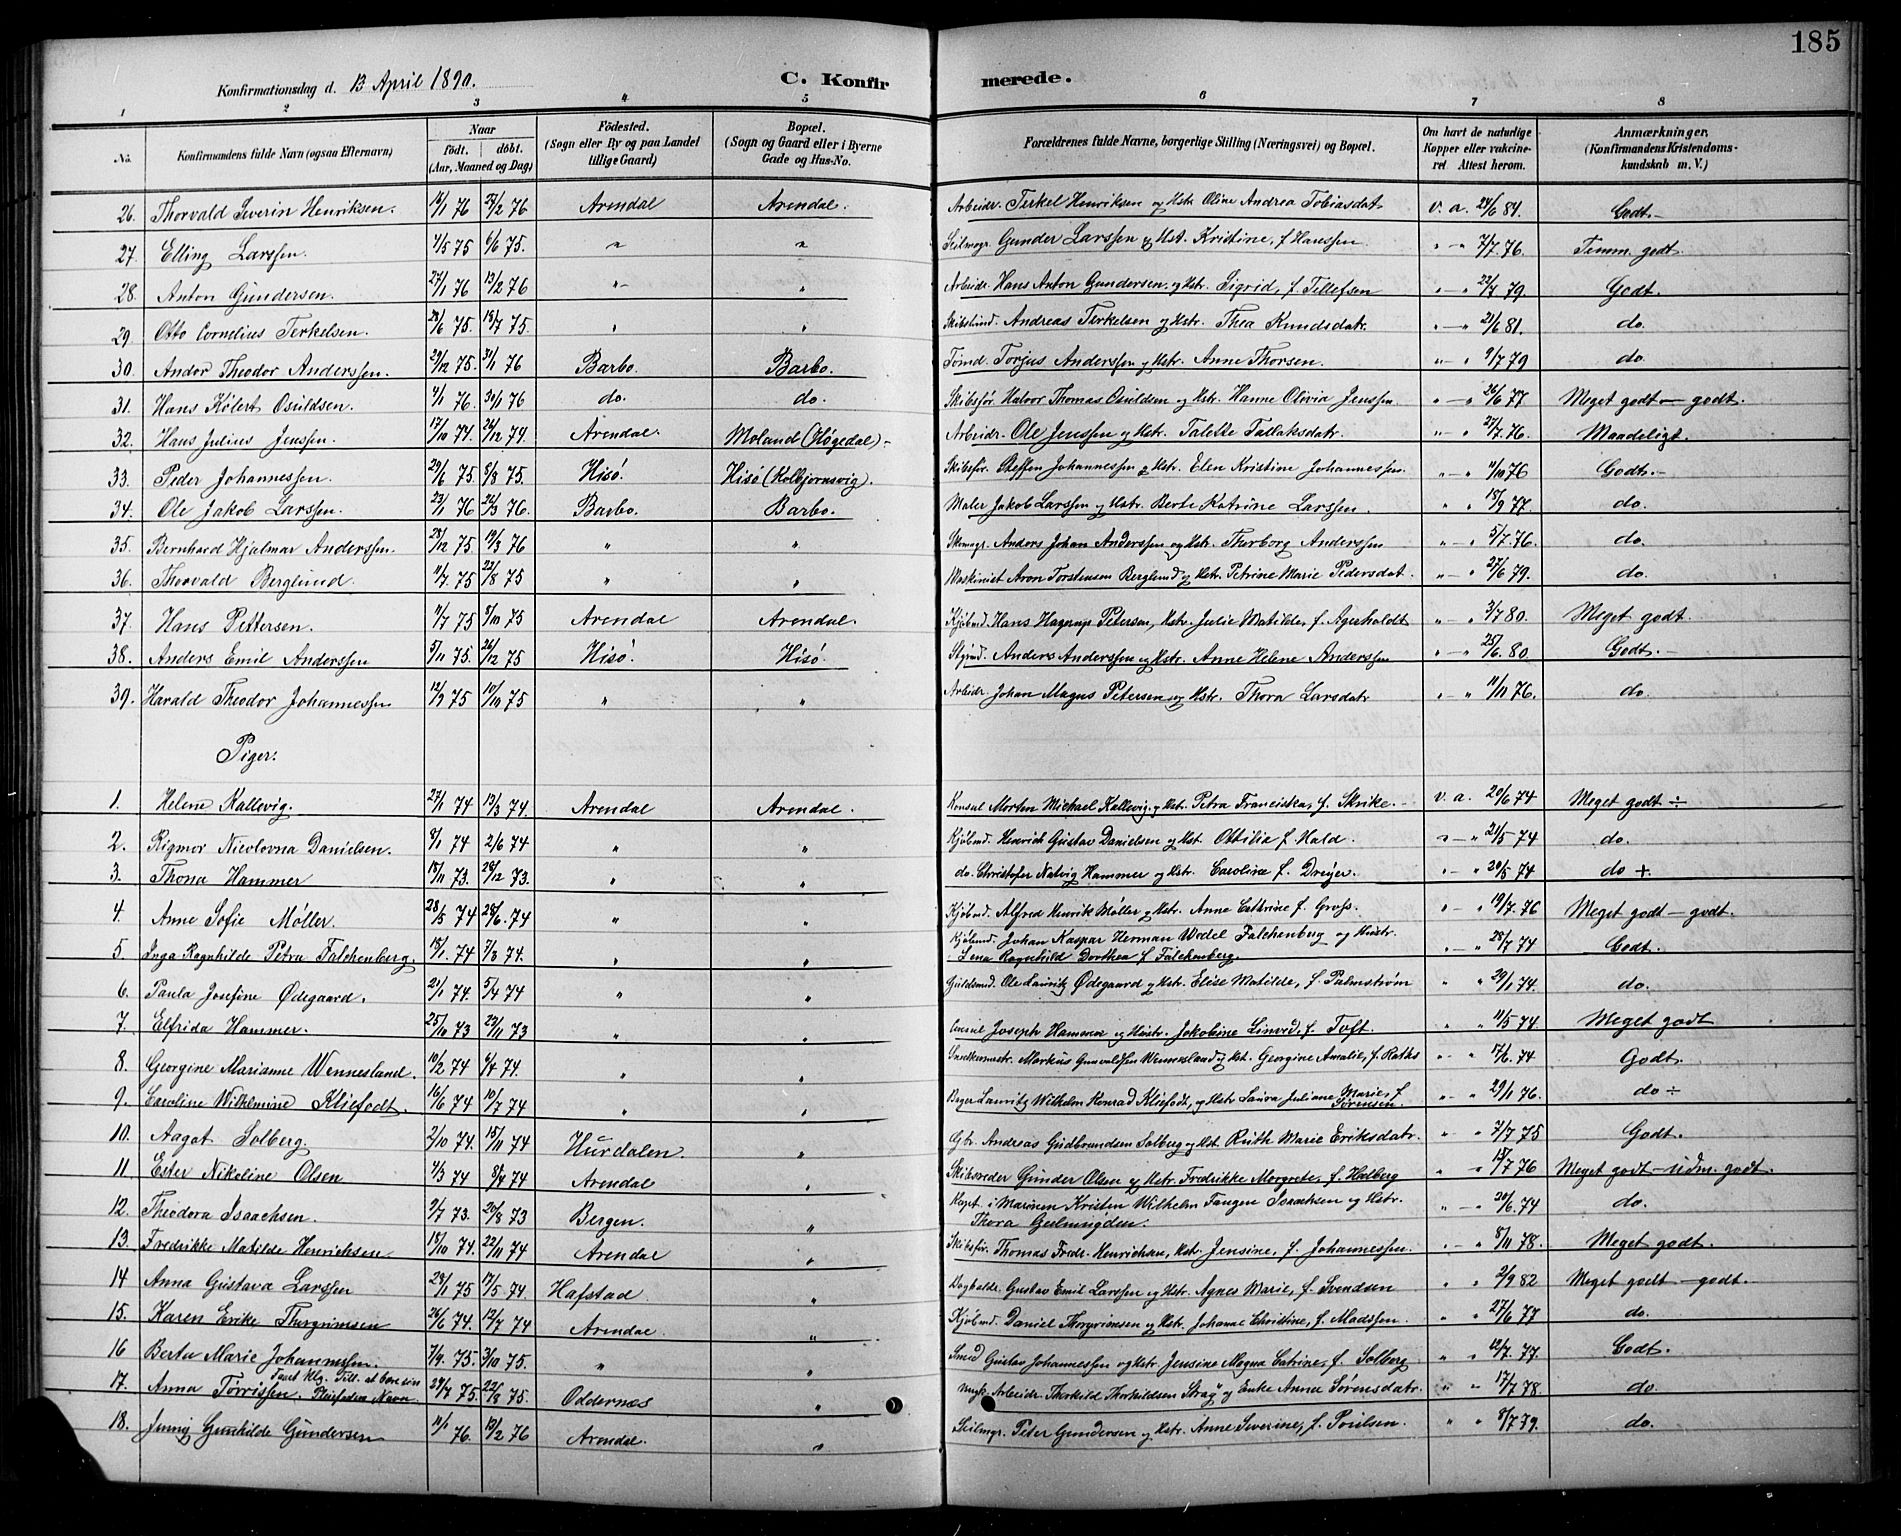 185
Konfirmationsdag d. 13 April 1890.
C. Konfir merede.
1 2 3 4 5 6 7 8
No. Konfirmandens fulde Navn (ogsaa Efternavn) Naar født. døbt. (Aar, Maaned og Dag) Fødested. (Sogn eller By og paa Landet tillige Gaard) Bopæl. (Sogn og Gaard eller i Byerne Gade og Hus-No. Forældrenes fulde Navne, borgerlige Stilling (Næringsvei) og Bopæl. Om havt de naturlige Kopper eller vakcineret Attest herom. Anmærkninger. (Konfirmandens Kristendomskundskab m. V.)
26. Thorvald Severin Henriksen. 16/1 76 27/2 76 Arendal Arendal. Arbeidr. Terkel Henriksen og Hstr. Oline Andrea Tobiasdat v. a. 24/6 84. Godt.-
27. Elling Larssen. 4/5 75 6/6 75. " " Seilmgr. Gunder Larssen og Hst. Kristine, f. Hanssen " - " 7/7. 76. Temm. godt.
28. Anton Gundersen. 27/1 76 13/2 76 " " Arbeidr. Hans Anton Gundersen, og Hstr. Sigrid, f. Tellefsen " - " 22/7 79. Godt.
29. Otto Cornelius Terkelsen. 28/6 75. 18/7 75. " " Skibstmd. Andreas Terkelsen og Hstr. Thea Knudsdatr. " - " 21/6 81. do.
30. Andor Theodor Anderssen. 29/12 75. 31/1 76 Barbo. Barbo. Tømd. Torjus Anderssen og Hstr. Anne Thorsen. " - " 9/7 79 do.
31. Hans Kølert Osuldsen. 4/1 76. 30/1 76 do. do. Skibsfør. Halvor Thomas Osuldsen og Hstr. Hanne Olivia Jenssen. " - " 26/6 77 Meget godt - godt.
32. Hans Julius Jenssen. 17/10 74. 26/12 74. Arendal. Moland (Høgedal) - Arbeidr. Ole Jenssen og Hstr. Talette Tallaksdatr. " - " 27/7. 76. Maadeligt.
33. Peder Johannessen. 29/6 75. 8/8 75. Hisö. Hisö (Kolbjornsvig). Skibsfør. Steffen Johannessen og Hstr. Elen Kristine Johannessen. " - " 11/10 76 Godt.-
34. Ole Jakob Larssen. 23/1 76 26/3 76. Barbo. Barbo. Maler Jakob Larssen og Hstr. Berte Katrine Larssen. " " 18/9 77. do.
35. Bernhard Hjalmar Anderssen. 28/12 75. 19/3 76 " " Skomgr. Anders Johan Anderssen og Hstr. Thurborg Anderssen " - " 5/7. 76. do.
36. Thorvald Berglund. 11/7. 75 22/8 75 " " Maskinist Aron Torstensen Berglund og Hstr. Petrine Marie Pedersdat. " - " 27/6 79. do.
37. Hans Pettersen. 11/7 75 8/10 75 Arendal Arendal. Kjøbmd. Hans Hagerup Petersen, Hstr. Julie Matilde, f. Agerholdt " - " 3/7 80. Meget godt.
38. Anders Emil Anderssen 5/11 75. 26/12 75 Hisö. Hisö. Styrmd. Anders Anderssen og Hstr. Anne Helene Anderssen " - " 25/6. 80. Godt.-
39. Harald Theodor Johannessen 12/9 75 10/10 75 " " Arbeidr. Johan Magus Petersen og Hstr. Thora Larsdatr. " - " 11/11 76. do.
Piger:
1. Helene Kallevig. 27/1 74 19/3 74. Arendal Arendal. Konsul Morten Michael Kallevig, og Hstr. Petra Franciska, f. Skrike.- v. a. 20/6 74 Meget godt ÷
2. Rigmor Nicolovna Danielsen. 8/1 74 2/6 74 " " Kjøbmd. Henrich Gustav Danielsen og Hst. Ottilia f. Hald. " - " 21/5 74 do.
3. Thona Hammer 18/11 73. 28/12 73. " " do. Christofer Natvig Hammer og Hstr. Caroline f. Dreyer. " - " 20/5 74 do ÷.
4. Anne Sofie Møller. 28/5 74 28/6. 74 " " Kjøbmd. Alfred Henrik Møller og Hstr. Anne Cathrine f. Gross. " - " 19/7. 76 Meget godt - godt.
5. Inga Ragnhilde Petra Falchenberg. 18/1. 74 7/3 74. " " Kjøbmd. Johan Kaspar Herman Wedel Falchenberg og Hustr. Lena Ragnhild Dorthea f. Falchenberg. " - " 28/7 74 Godt.
6. Paula Josefine Ødegaard. 21/1 74. 5/4 74 " " Guldsmd. Ole Lauritz Ødegaard og Hstr. Elise Matilde, f. Palmstrøm " " 29/1 74. do.
7. Elfrida Hammer. 25/10 73 23/11 73 " Joseph Hammer og Hustr. Jakobine Linved, f. Toft. " " 11/5 74. Meget godt
8. Georgine Marianne Wennesland. 10/2 74 6/4 74. " " Markus Gunvaldsen Wennesland og Hst. Georgine Amalie, f. Raths " - " 17/6. 74 Godt.
9. Caroline Wilhelmine Kliefodt. 16/6 74 10/7 74 " " Bager Lauritz Wilhelm Konrad Kliefodt, og Hstr. Laura Juliane Marie, f. Sørensen. " - " 29/11 76. do ÷
10. Aagot Solberg. 2/10 74. 15/11 74 Hurdalen. " Gbr. Andreas Gudbrandsen Solberg og Hst. Ruth Marie Eriksdatr. " - " 7/7 75 Godt.
11. Ester Nikoline Olsen 4/3 74 8/4 74 Arendal " Skibsreder Gunder Olsen og Hstr. Fredrikke Margrete, f. Halberg " " 15/7 76 Meget godt - udm. godt.
12. Theodora Isaachsen. 2/7 73. 20/8 73 Bergen. " Kapt. i Marinen Kristen Wilhelm Fangen Isaachsen og Hstr. Thora Gulmigden. " - " 20/6. 74 do.
13. Fredrikke Matilde Henrichsen 18/10 74. 22/11 74 Arendal " Skibsfør. Thomas Fredr. Henrichsen, Hstr. Jensine, f. Johannessen. " - " 8/11 78. Meget godt.
14 Anna Gustava Larssen 28/1 75 17/5. 74 Hafstad " Gustav Emil Larssen og Hstr. Agnes Marie, f. Svendsen " " 2/9 82 Meget godt - godt.
15. Karen Erike Thorgrimsen 26/6 74. 12/7 74 Arendal. " Kjøbmd. Daniel Thorgrimsen og Hstr. Johanne Christine, f. Madssen. " " 27/6 77 do.
16 Berta Marie Johannessen. 7/9. 75. 3/10 75. " " Smed Gustav Johannessen og Hstr. Jensine Magna Catrine, f. Solberg. " " 12/7. 77. Godt.
17. Anna Tørrissen. Faaet Kgl. Till. at bære sin Pleiefaders Navn 29/7 75. 22/8 75. Oddernæs " Ungk. Arbeidr. Thorkild Thorkildsen Strag og Enke Anna Sørensdatr. " " 17/7 78. do.
18. Jenny Gunhilde Gundersen 11/1 76. 13/2 76 Arendal. " Seilmgr. Peter Gundersen og Hstr. Anne Severine, f. Poulsen. " " 8/7 79. do.